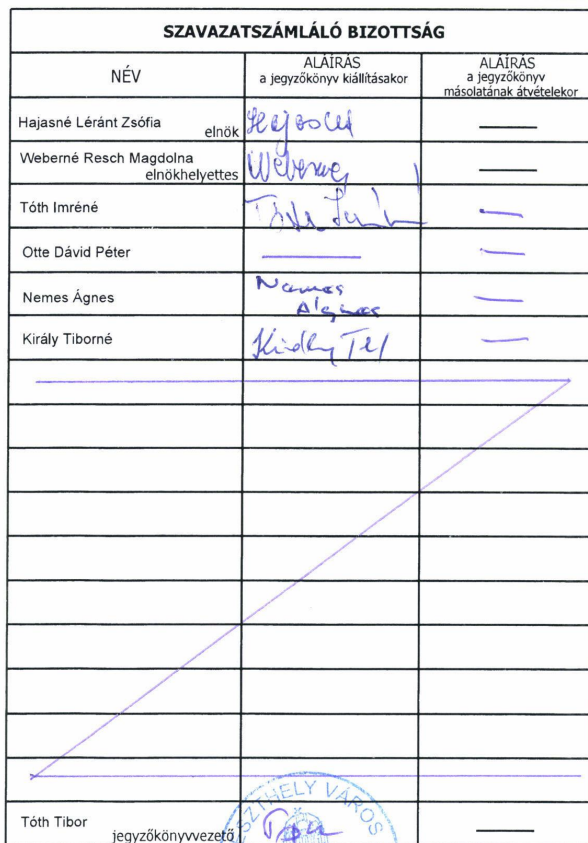 SZAVAZATSZÁMLÁLÓ BIZOTTSÁG
NÉV
ALÁÍRÁS
a jegyzőkönyv kiállításakor
ALÁÍRÁS
a jegyzőkönyv
másolatának átvételekor
Hajasné Léránt Zsófia
elnök
Weberné Resch Magdolna
elnökhelyettes
Weberné
Tóth Imréné
Tóth
Otte Dávid Péter
Nemes Ágnes
Nemes
Ágnes
Király Tiborné
Király
Tóth Tibor
jegyzőkönyvvezető
ESZTHELY VÁROS